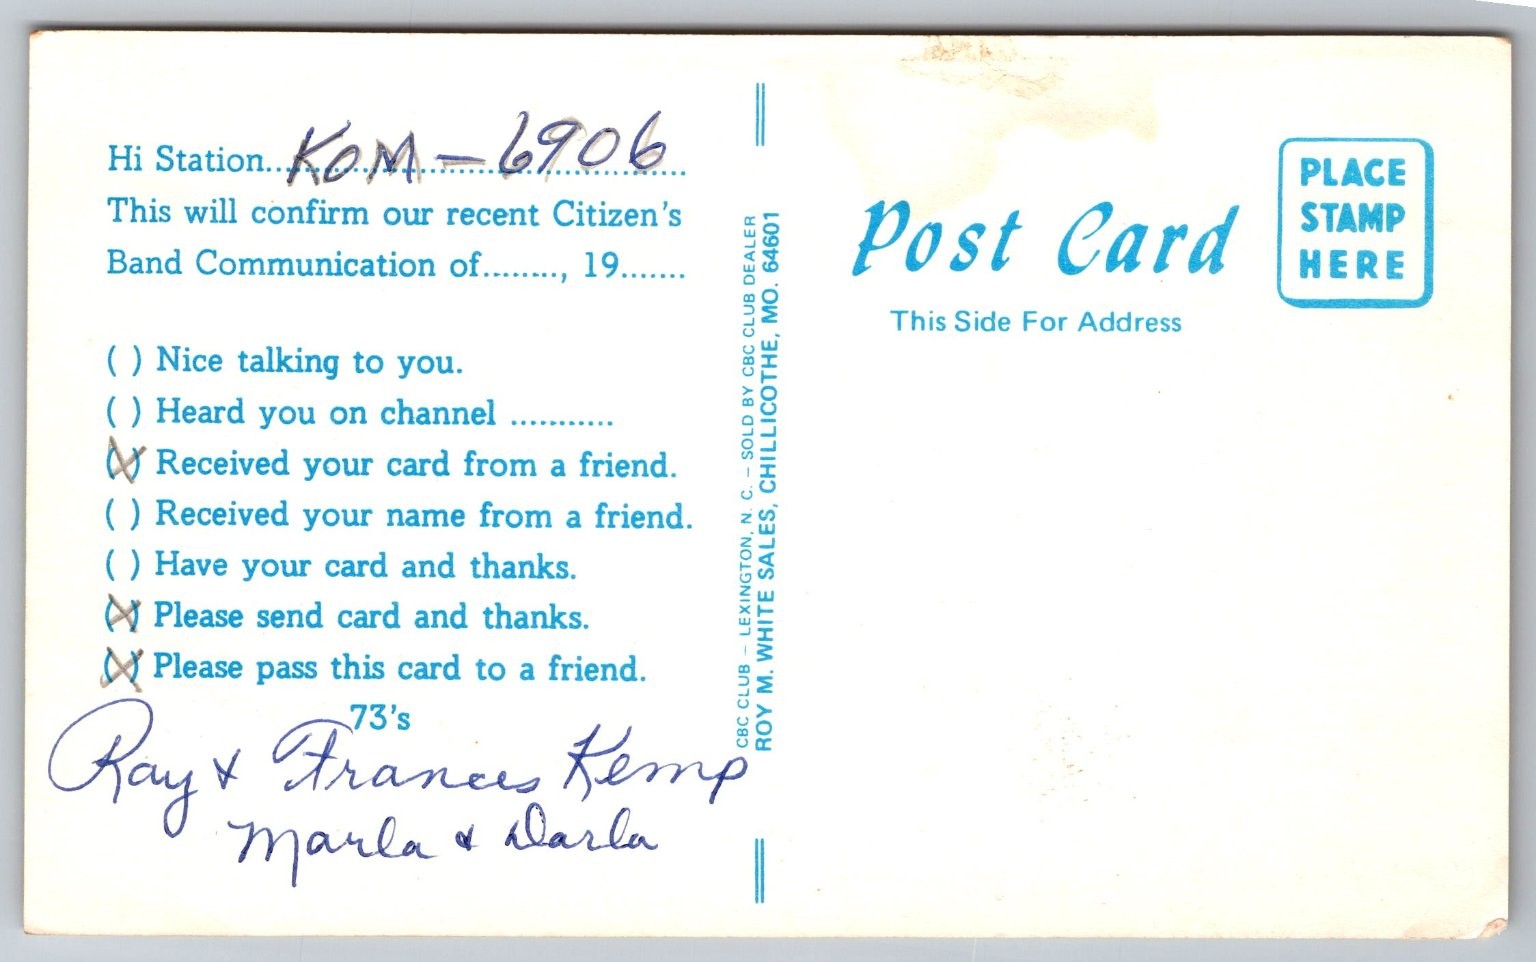 Hi Station..KOM-6906..
This will confirm our recent Citizen's
Band Communication of........, 19.......
( ) Nice talking to you.
( ) Heard you on channel ...........
(X) Received your card from a friend.
( ) Received your name from a friend.
( ) Have your card and thanks.
(X) Please send card and thanks.
(X) Please pass this card to a friend.
73's
Ray & Frances Kemp
Marla & Darla
CBC CLUB – LEXINGTON, N. C. – SOLD BY CBC CLUB DEALER
ROY M. WHITE SALES, CHILLICOTHE, MO. 64601
Post Card
This Side For Address
PLACE
STAMP
HERE